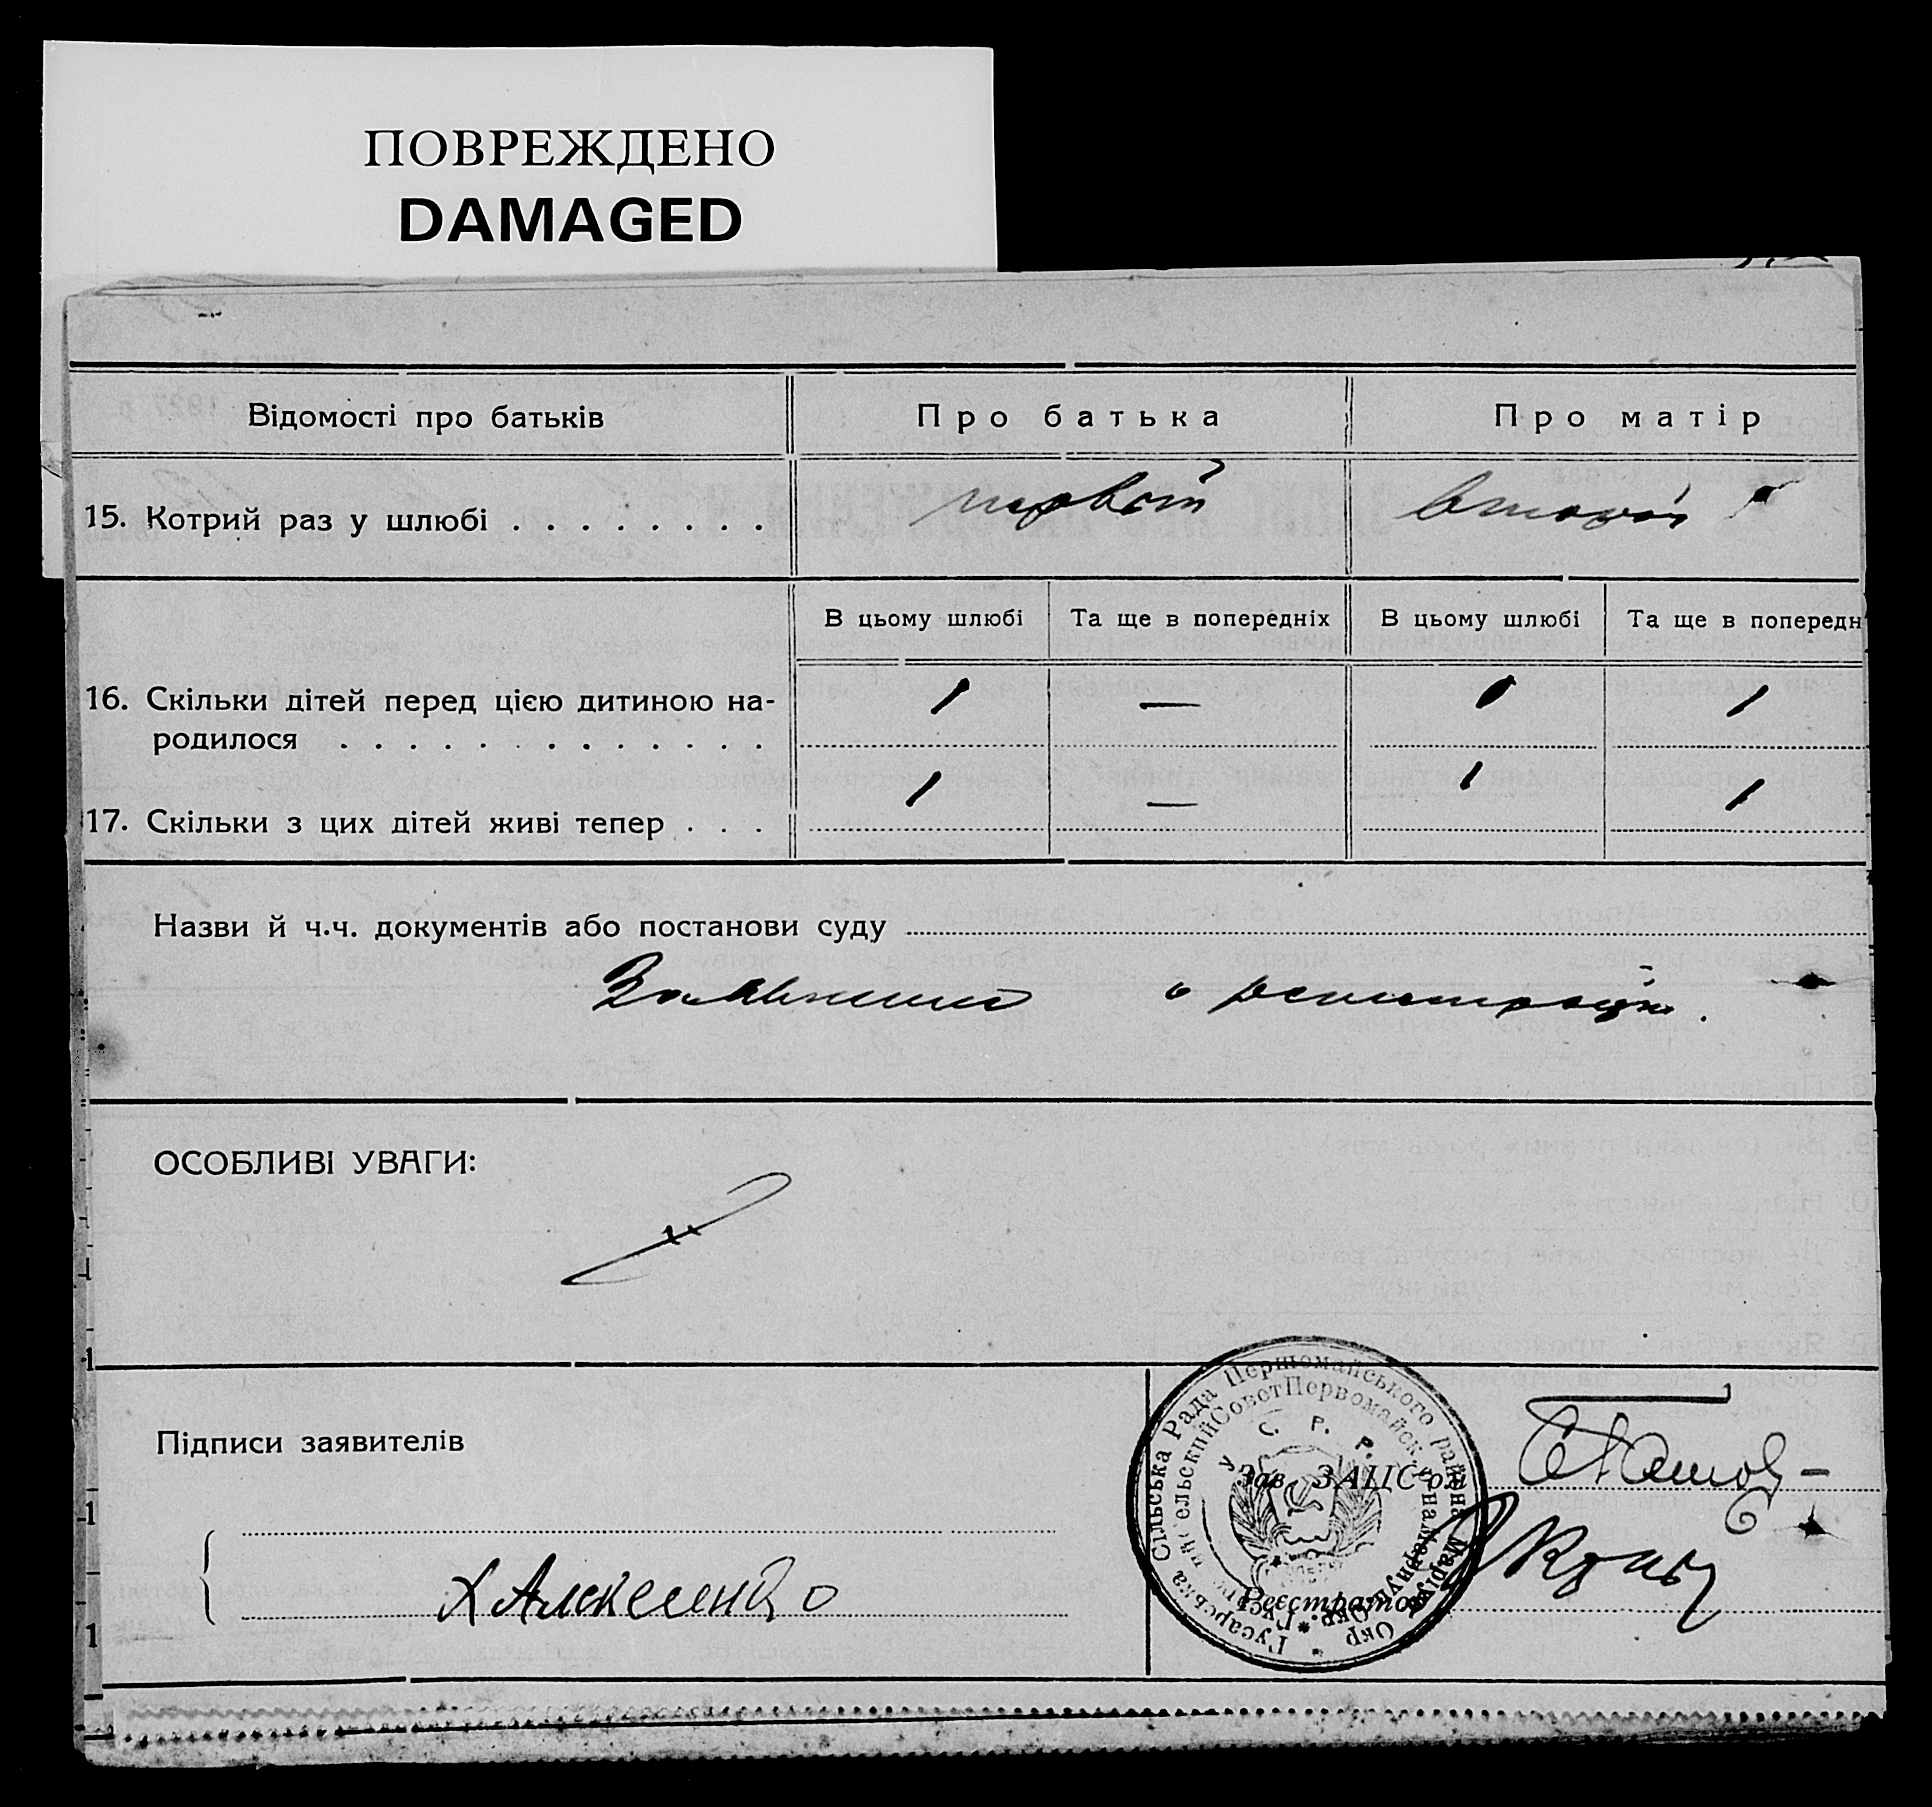 ПОВРЕЖДЕНО
DAMAGED
Відомості про батьків
Про батька
Про матір
15. Котрий раз у шлюбі . . . . . . . .
первый
второй
В цьому шлюбі
Та ще в попередніх
В цьому шлюбі
Та ще в попередн
16. Скільки дітей перед цією дитиною на-
родилося . . . . . . . . . . . . .
1 — 1 1
17. Скільки з цих дітей живі тепер . . .
1 — 1 1
Назви й ч.ч. документів або постанови суду
Заявление о регистрации.
ОСОБЛИВІ УВАГИ:
Підписи заявителів
Алексенко
Зав. ЗАЦС'ом
Реєстратор
Гусарська Сільська Рада Першомайського района Маріуп. Окр.
У. С. Р. Р.